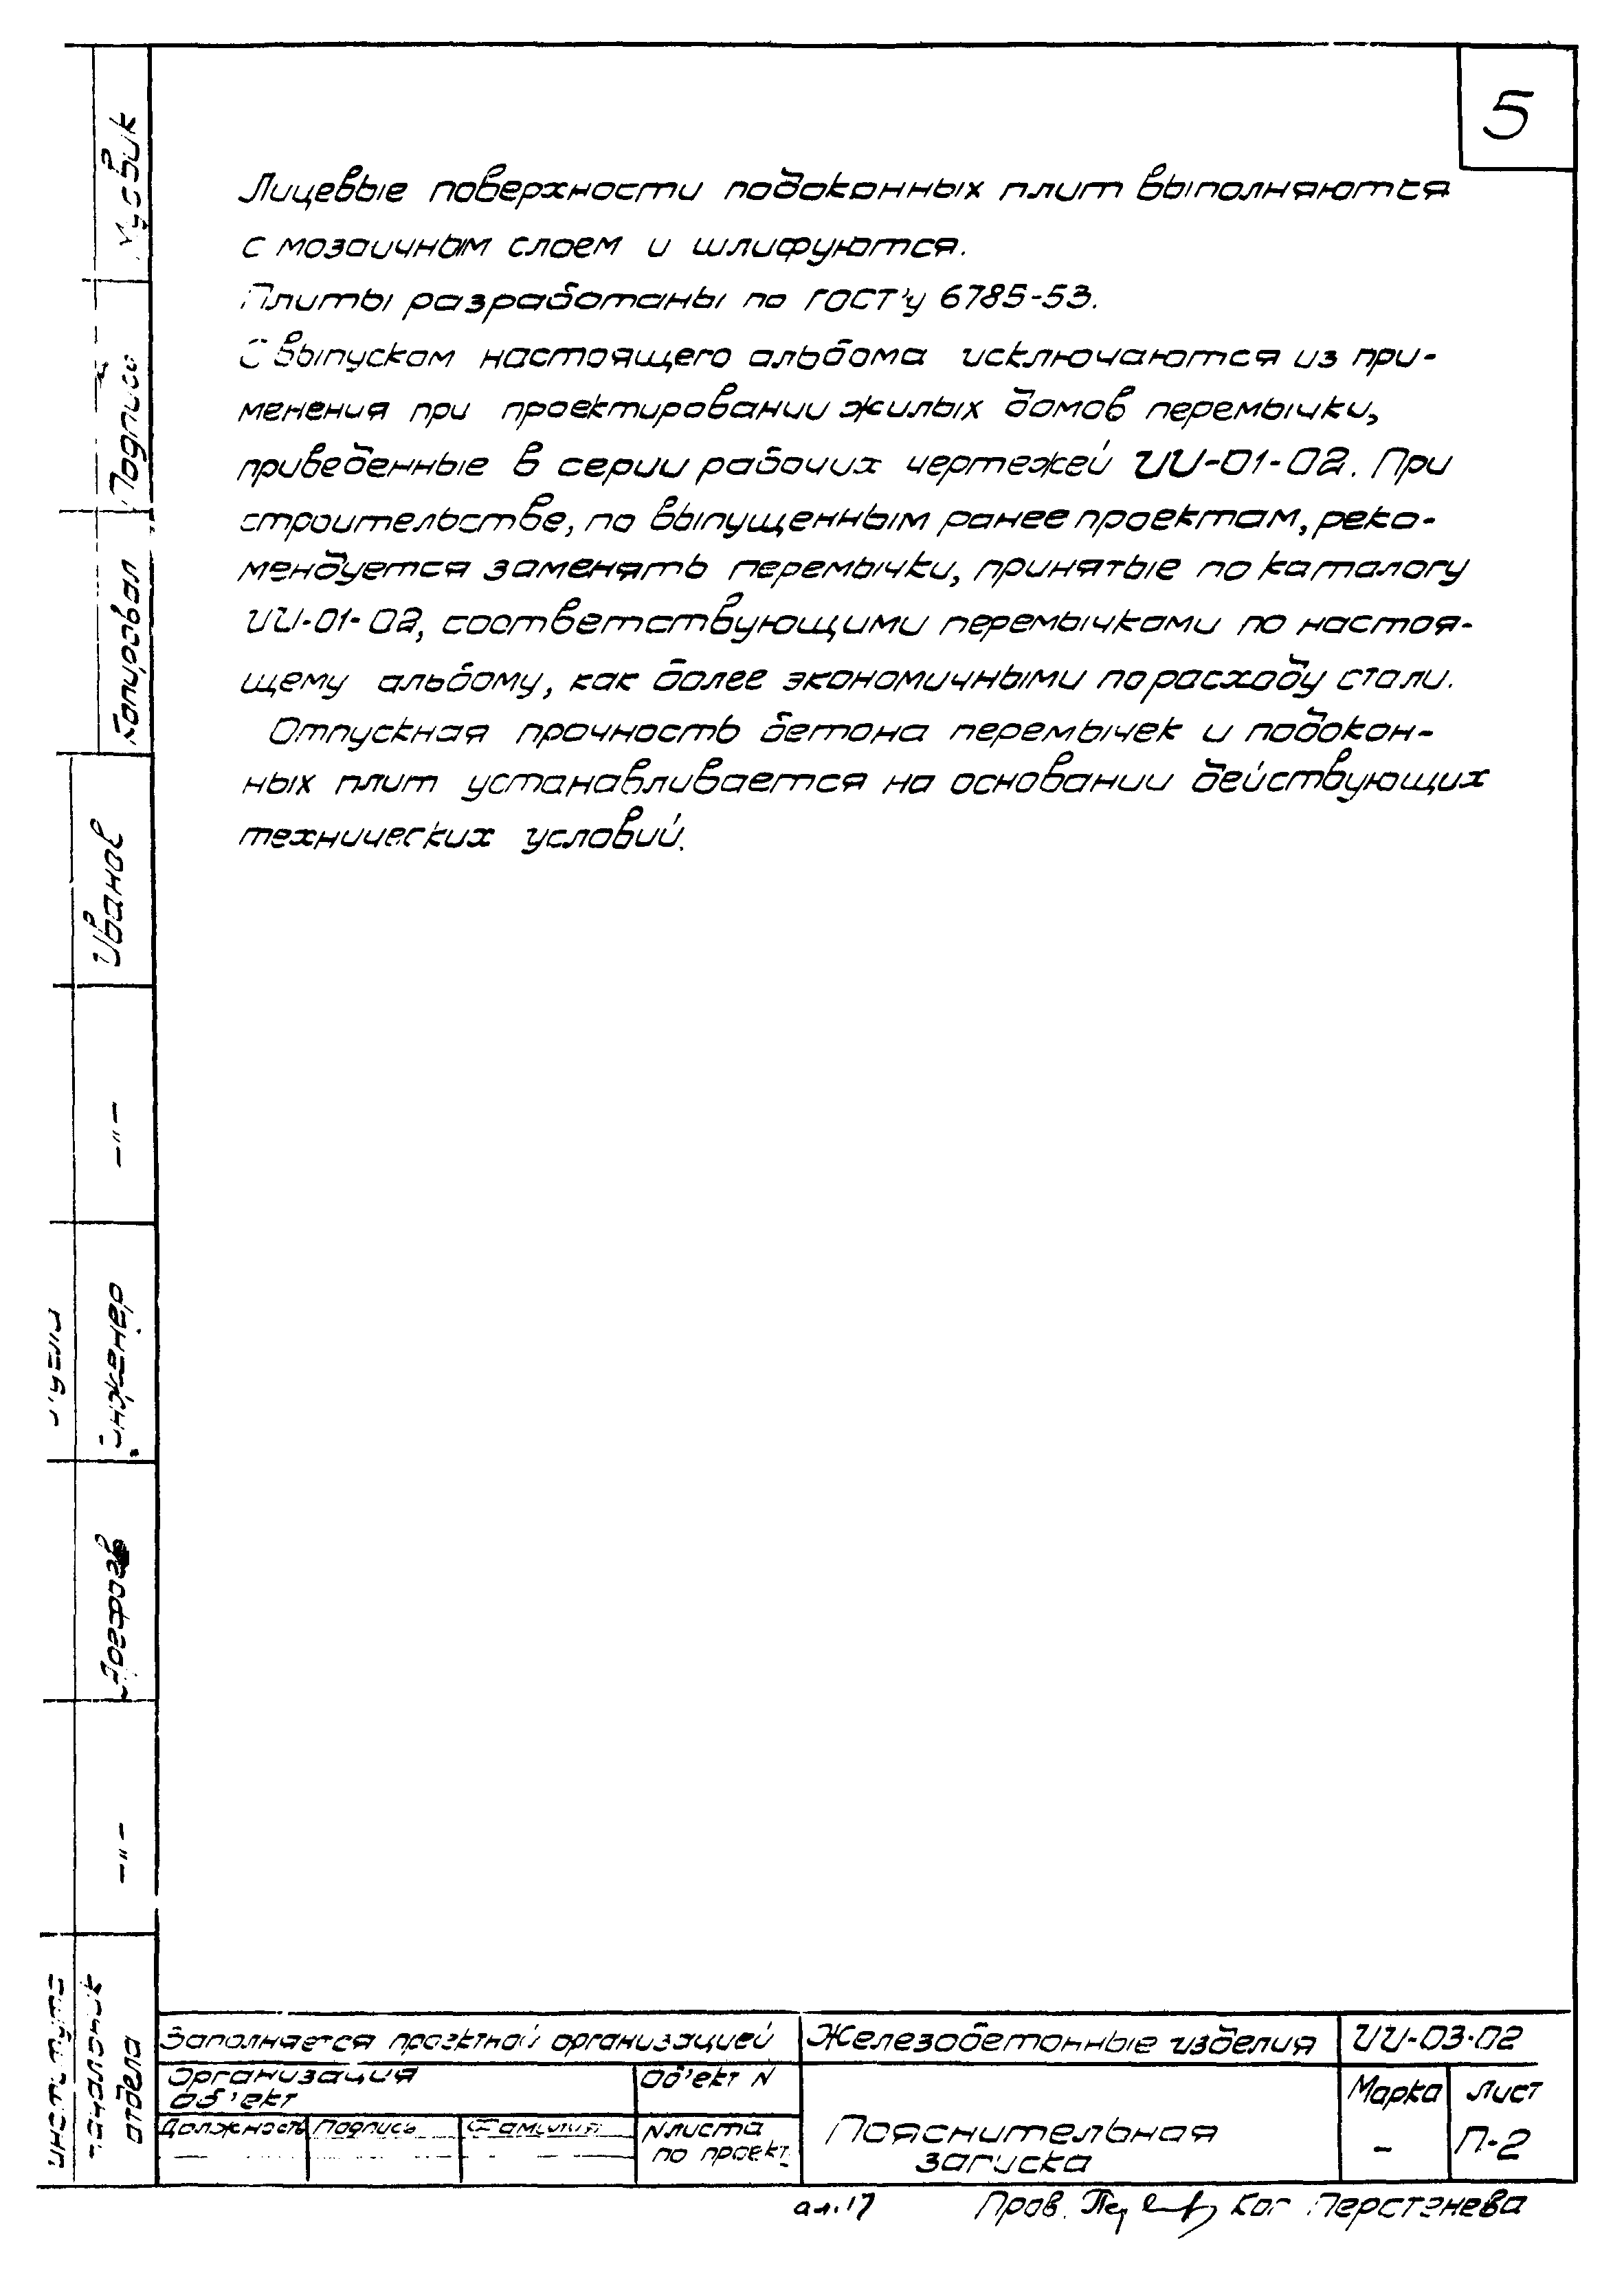 5
Лицевые поверхности подоконных плит выполняются
с мозаичным слоем и шлифуются.
Плиты разработаны по ГОСТ'у 6785-53.
С выпуском настоящего альбома исключаются из при-
менения при проектировании жилых домов перемычки,
приведенные в серии рабочих чертежей ИИ-01-02. При
строительстве, по выпущенным ранее проектам, реко-
мендуется заменять перемычки, принятые по каталогу
ИИ-01-02, соответствующими перемычками по настоя-
щему альбому, как более экономичными по расходу стали.
Отпускная прочность бетона перемычек и подокон-
ных плит устанавливается на основании действующих
технических условий.
Подпись
Копировал
Иванов
-"-
Инженер
-"-
института
начальник
отдела
Заполняется проектной организацией
Железобетонные изделия
ИИ-03-02
Организация
Об'ект N
об'ект
Марка
Лист
Должность
Подпись
Фамилия
N листа
по проект.
Пояснительная
записка
-
П-2
Пров.
Коп Перстенева